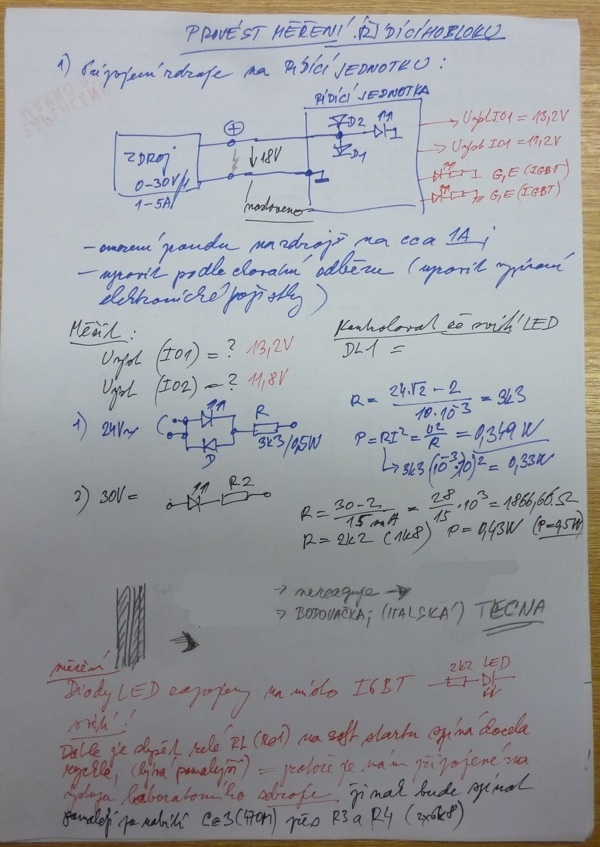 PROVÉST MĚŘENÍ ŘÍDÍCÍHO BLOKU
1) Připojení zdroje na ŘÍDÍCÍ JEDNOTKU:
ŘÍDÍCÍ JEDNOTKA
ZDROJ
0-30V/
1-5A
+
18V
D2
D1
1
nastaveno
Uvýst IO1 = 13,2V
Uvýst IO1 = 11,2V
G,E (IGBT)
G,E (IGBT)
- omezení proudu na zdroji na cca 1A;
- upravit podle chování odběru (upravit vypínání
elektronické pojistky)
Měřit:
Uvýst (IO1) = ? 13,2V
Uvýst (IO2) = ? 11,8V
Kontrolovat že svítí LED
DL1 =
1) 24V~
D
R
3k3/0,5W
R = 24·√2 - 2 / 10·10⁻³ = 3k3
P = RI² = U²/R = 0,349W
3k3(10⁻³·10)² = 0,33W
2) 30V=
R2
R = 30-2 / 15mA = 28/15 ·10³ = 1866,66Ω
R = 2k2 (1k8) P = 0,43W (P=0,5W)
→ nereaguje →
→ BODOVAČKA; (ITALSKÁ) TECNA
měření
Diody LED zapojeny na místo IGBT
2k2 LED
svítí!
Dále je slyšet relé RL1 (Re1) na soft startu spíná docela
rychle, (bývá pomalejší) = protože je nám připojené na
výstup laboratorního zdroje. Jinak bude spínat
pomaleji než nabití C23 (470M) přes R3 a R4 (2x6k8)